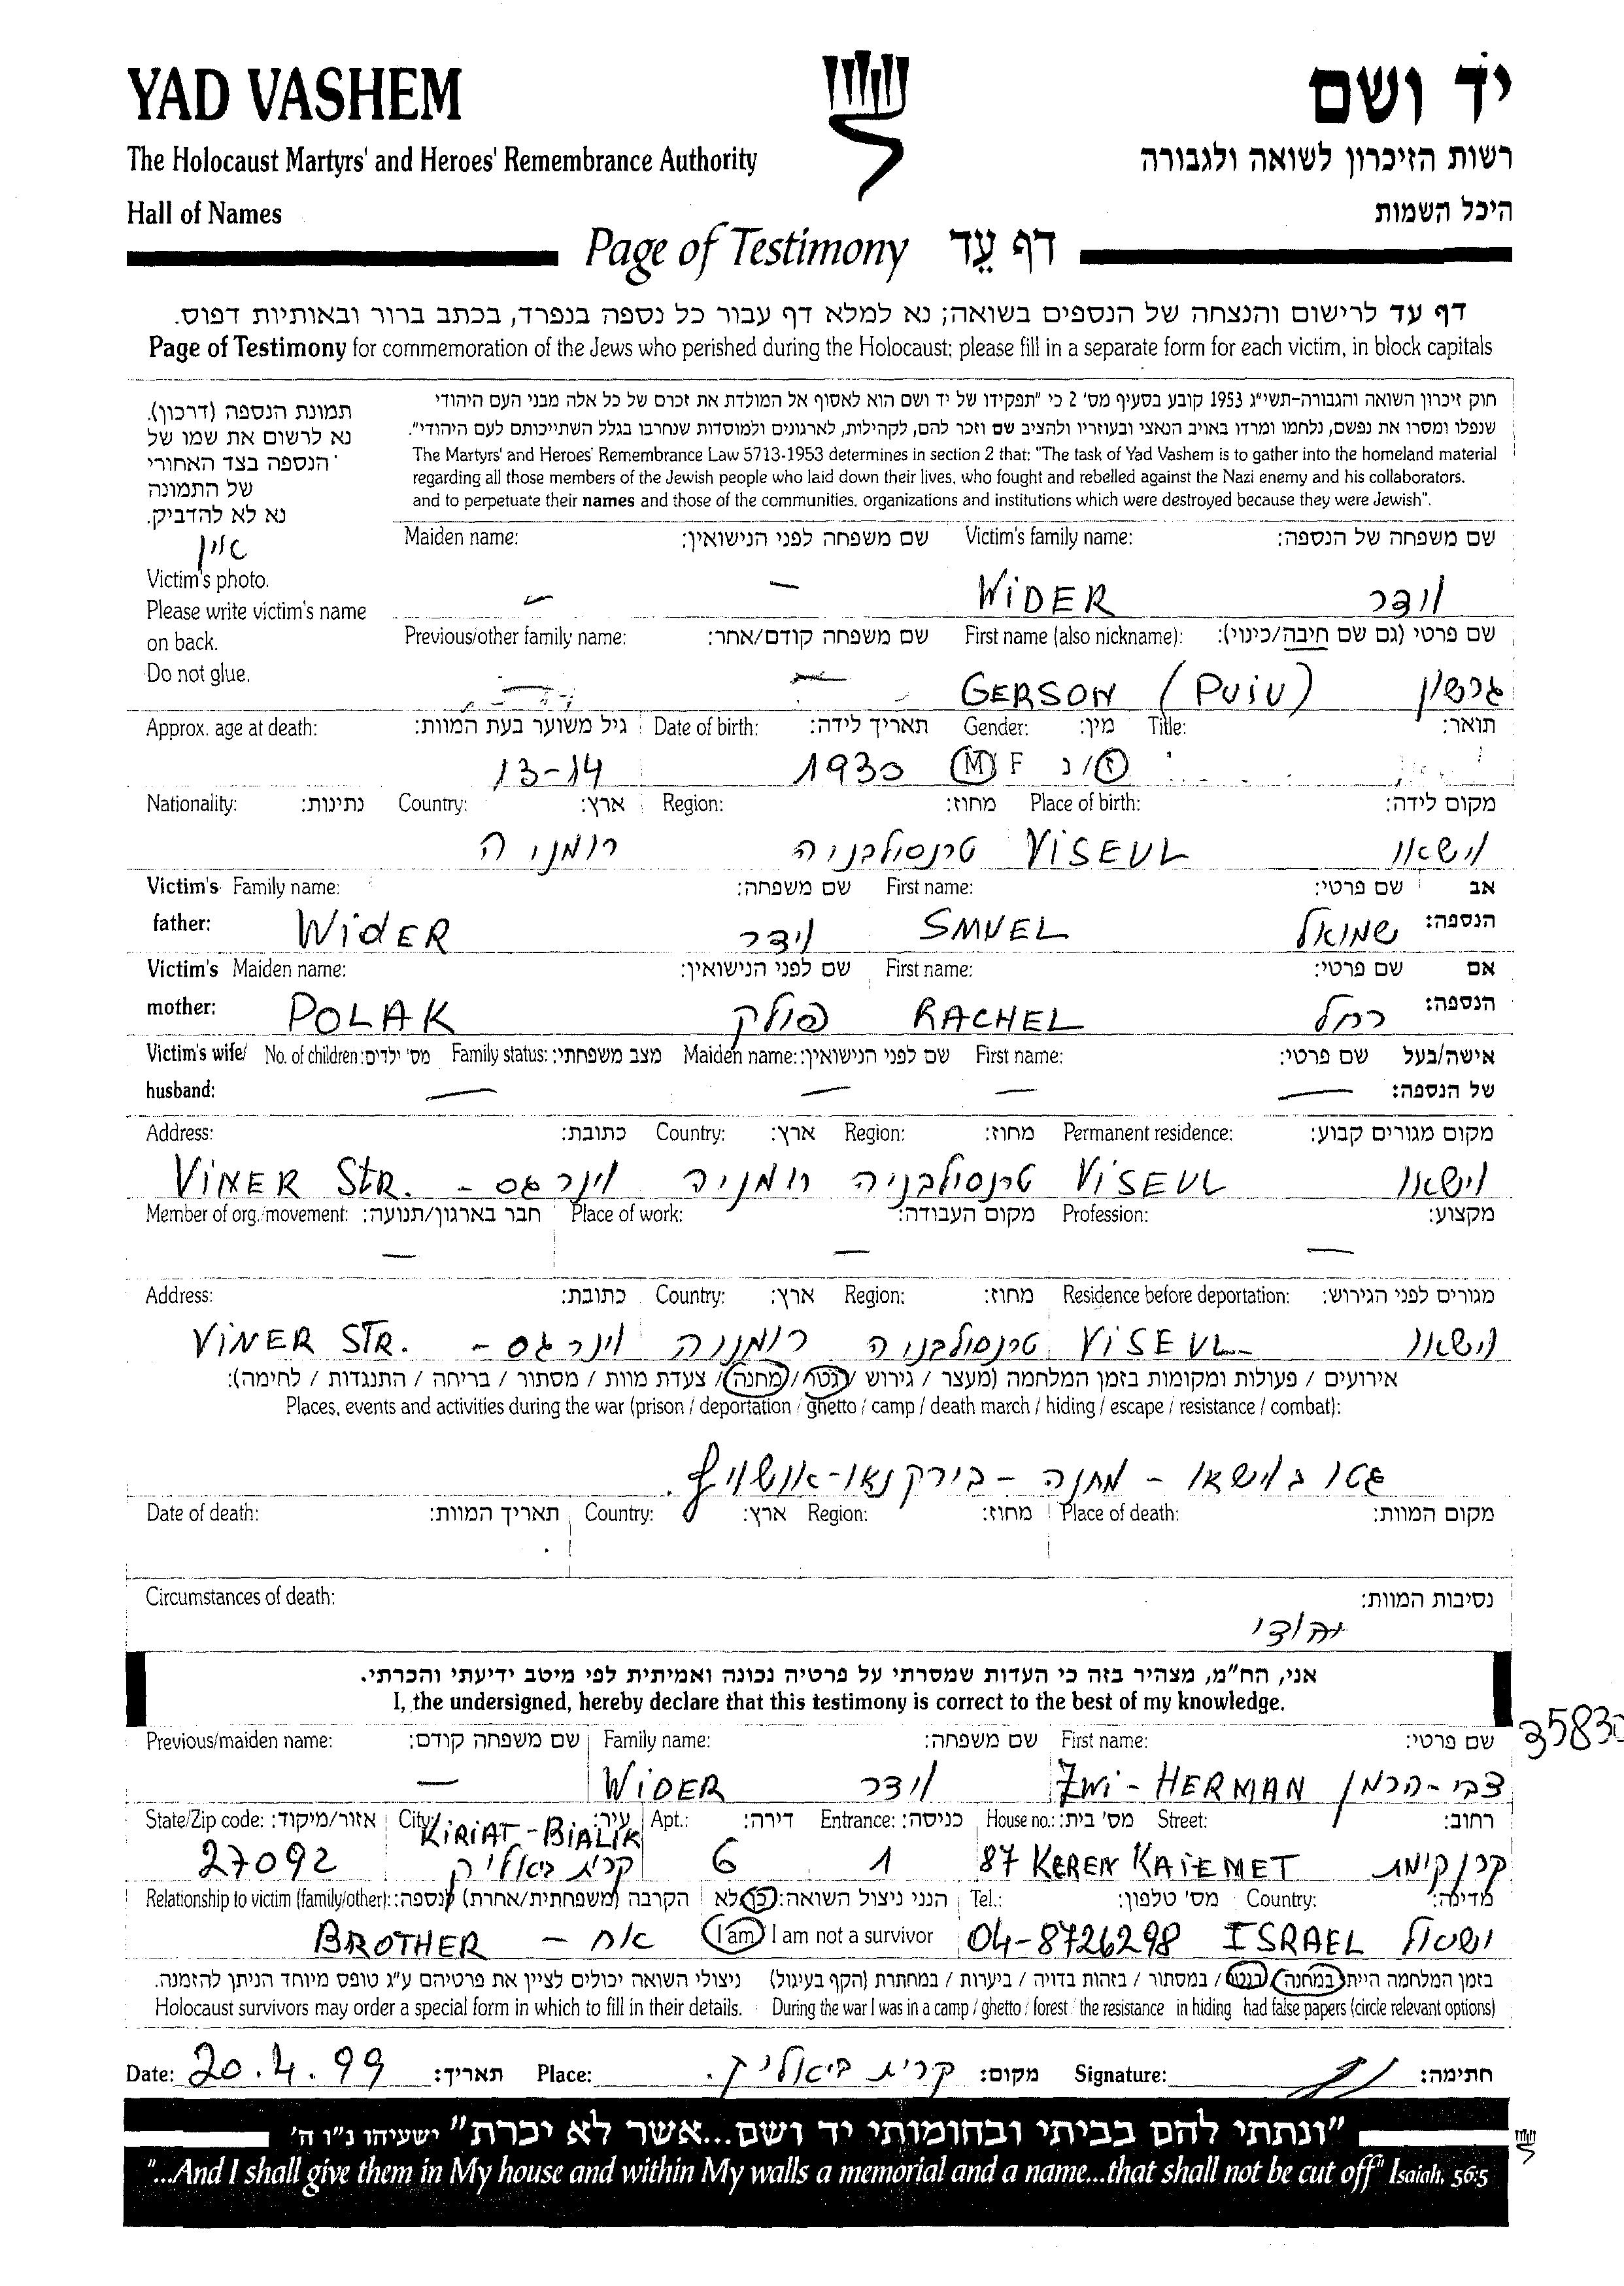 YAD VASHEM יד ושם
The Holocaust Martyrs' and Heroes' Remembrance Authority רשות הזיכרון לשואה ולגבורה
Hall of Names היכל השמות
Page of Testimony דף עֵד
דף עד לרישום והנצחה של הנספים בשואה; נא למלא דף עבור כל נספה בנפרד, בכתב ברור ובאותיות דפוס.
Page of Testimony for commemoration of the Jews who perished during the Holocaust; please fill in a separate form for each victim, in block capitals
חוק זיכרון השואה והגבורה-תשי"ג 1953 קובע בסעיף מס' 2 כי "תפקידו של יד ושם הוא לאסוף אל המולדת את זכרם של כל אלה מבני העם היהודי
שנפלו ומסרו את נפשם, נלחמו ומרדו באויב הנאצי ובעוזריו ולהציב שם וזכר להם, לקהילות, לארגונים ולמוסדות שנחרבו בגלל השתייכותם לעם היהודי".
The Martyrs' and Heroes' Remembrance Law 5713-1953 determines in section 2 that: "The task of Yad Vashem is to gather into the homeland material
regarding all those members of the Jewish people who laid down their lives, who fought and rebelled against the Nazi enemy and his collaborators,
and to perpetuate their names and those of the communities, organizations and institutions which were destroyed because they were Jewish".
תמונת הנספה (דרכון).
נא לרשום את שמו של
הנספה בצד האחורי
של התמונה
נא לא להדביק.
אין
Victim's photo.
Please write victim's name
on back.
Do not glue.
Maiden name: שם משפחה לפני הנישואין: Victim's family name: שם משפחה של הנספה:
– – WIDER וידר
Previous/other family name: שם משפחה קודם/אחר: First name (also nickname): שם פרטי (גם שם חיבה/כינוי):
– GERSON (PUIU) גרשון
Approx. age at death: גיל משוער בעת המוות: Date of birth: תאריך לידה: Gender: מין: Title: תואר:
13-14 1930 M F ז/נ
Nationality: נתינות: Country: ארץ: Region: מחוז: Place of birth: מקום לידה:
רומניה טרנסולבניה VISEUL וישאו
Victim's father: Family name: שם משפחה: First name: שם פרטי: אב הנספה:
WIDER וידר SMUEL שמואל
Victim's mother: Maiden name: שם לפני הנישואין: First name: שם פרטי: אם הנספה:
POLAK פולק RACHEL רחל
Victim's wife/ husband: No. of children: מס' ילדים: Family status: מצב משפחתי: Maiden name: שם לפני הנישואין: First name: שם פרטי: אישה/בעל של הנספה:
– – – –
Address: כתובת: Country: ארץ: Region: מחוז: Permanent residence: מקום מגורים קבוע:
VINER STR. – וינר גס רומניה טרנסולבניה VISEUL וישאו
Member of org./movement: חבר בארגון/תנועה: Place of work: מקום העבודה: Profession: מקצוע:
– – –
Address: כתובת: Country: ארץ: Region: מחוז: Residence before deportation: מגורים לפני הגירוש:
VINER STR. – וינר גס רומניה טרנסולבניה VISEUL וישאו
אירועים / פעולות ומקומות בזמן המלחמה (מעצר / גירוש / גטו / מחנה / צעדת מוות / מסתור / בריחה / התנגדות / לחימה):
Places, events and activities during the war (prison / deportation / ghetto / camp / death march / hiding / escape / resistance / combat):
גטו בוישאו - מחנה - בירקנאו-אושויץ.
Date of death: תאריך המוות: Country: ארץ: Region: מחוז: Place of death: מקום המוות:
Circumstances of death: נסיבות המוות:
יהודי
אני, הח"מ, מצהיר בזה כי העדות שמסרתי על פרטיה נכונה ואמיתית לפי מיטב ידיעתי והכרתי.
I, the undersigned, hereby declare that this testimony is correct to the best of my knowledge.
Previous/maiden name: שם משפחה קודם: Family name: שם משפחה: First name: שם פרטי:
– WIDER וידר ZWI-HERMAN צבי-הרמן
State/Zip code: אזור/מיקוד: City: עיר: Apt.: דירה: Entrance: כניסה: House no.: מס' בית: Street: רחוב:
27092 KIRIAT-BIALIK קרית ביאליק 6 1 87 KEREN KAIEMET קרן קימת
Relationship to victim (family/other): הקרבה (משפחתית/אחרת) לנספה: הנני ניצול השואה: כן/לא Tel.: מס' טלפון: Country: מדינה:
BROTHER – אח I am I am not a survivor 04-8726298 ISRAEL ישראל
ניצולי השואה יכולים לציין את פרטיהם ע"ג טופס מיוחד הניתן להזמנה. בזמן המלחמה הייתי במחנה / בגטו / במסתור / בזהות בדויה / ביערות / במחתרת (הקף בעיגול)
Holocaust survivors may order a special form in which to fill in their details. During the war I was in a camp / ghetto / forest / the resistance in hiding had false papers (circle relevant options)
Date: 20.4.99 תאריך: Place: קרית ביאליק. מקום: Signature: חתימה:
"ונתתי להם בביתי ובחומותי יד ושם...אשר לא יכרת" ישעיהו נ"ו ה'
"...And I shall give them in My house and within My walls a memorial and a name...that shall not be cut off" Isaiah, 56:5